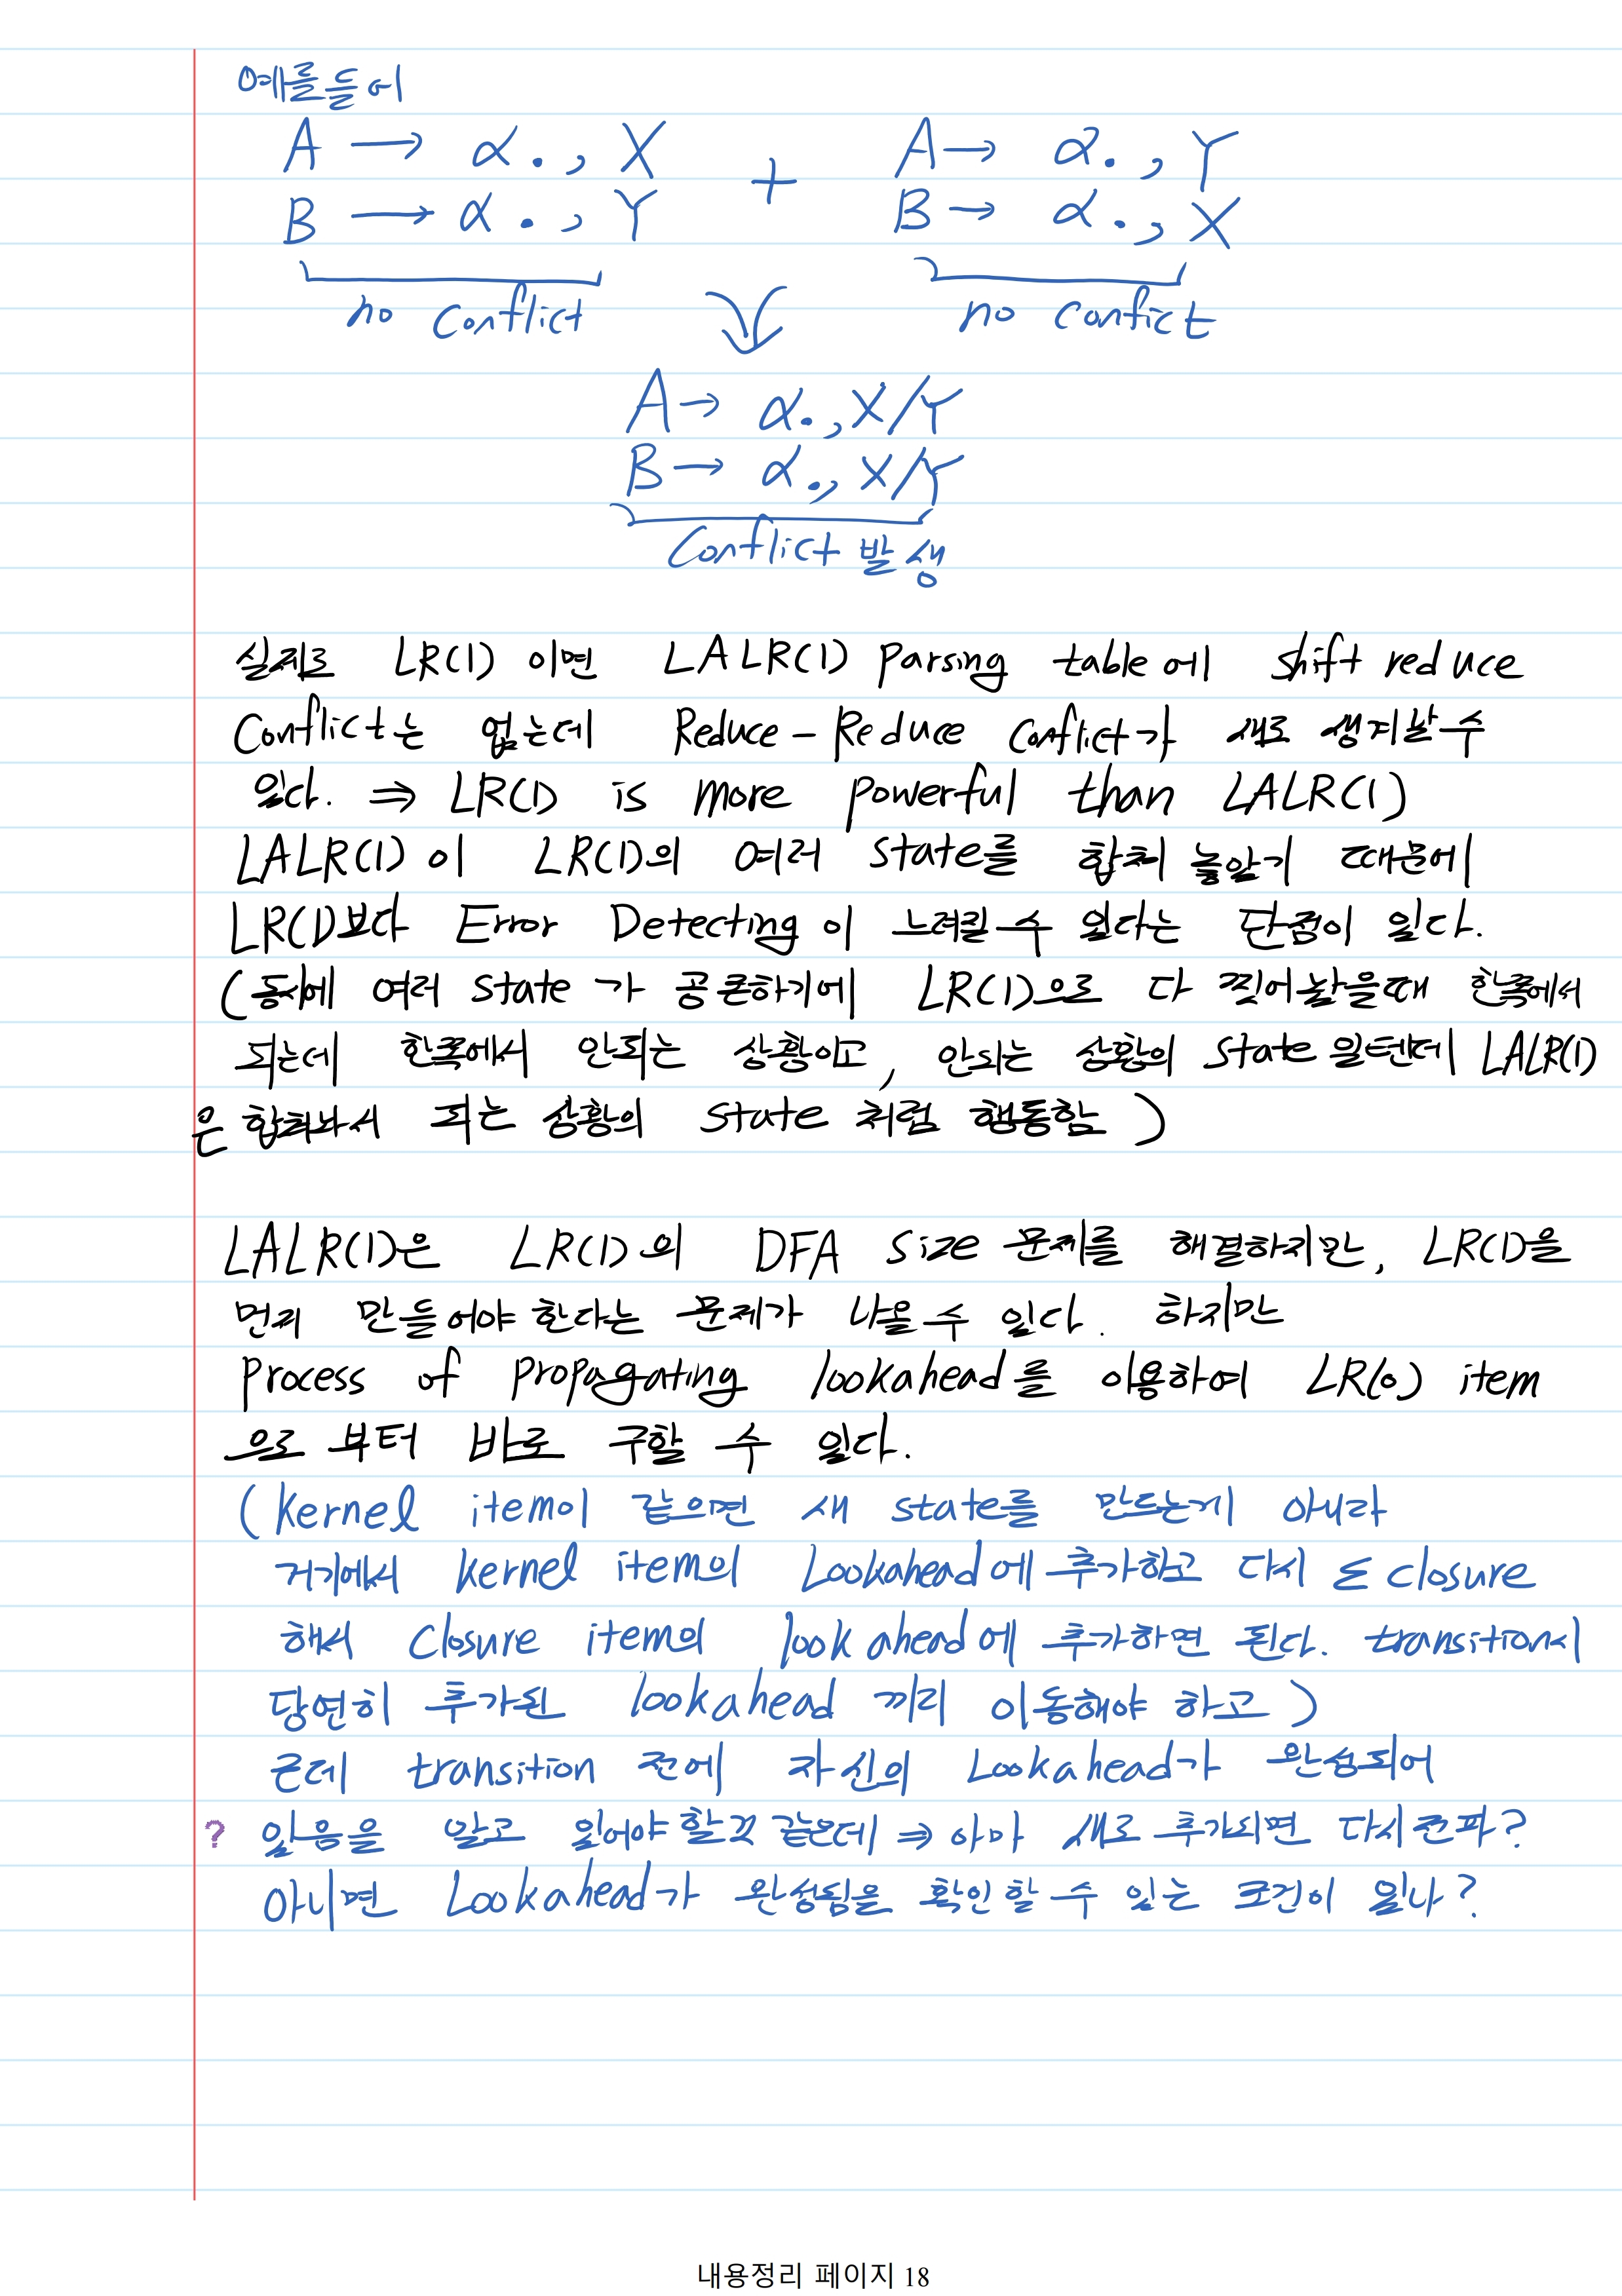 예를들어
A → α., X + A → α., Y
B → α., Y B → α., X
no Conflict no Confict
A → α., X/Y
B → α., X/Y
Conflict 발생
실제로 LR(1) 이면 LALR(1) Parsing table에 shift reduce
Conflict는 없는데 Reduce-Reduce Conflict가 새로 생겨날수
있다. ⇒ LR(1) is more powerful than LALR(1)
LALR(1)이 LR(1)의 여러 state를 합쳐 놓았기 때문에
LR(1)보다 Error Detecting이 느려질 수 있다는 단점이 있다.
(동시에 여러 state가 공존하기에 LR(1)으로 다 찢어놨을때 한쪽에서
되는데 한쪽에서 안되는 상황이고, 안되는 상황의 state 일텐데 LALR(1)
은 합쳐놔서 되는 상황의 state 처럼 행동함)
LALR(1)은 LR(1)의 DFA size 문제를 해결하지만, LR(1)을
먼저 만들어야 한다는 문제가 나올 수 있다. 하지만
Process of propagating lookahead를 이용하여 LR(0) item
으로 부터 바로 구할 수 있다.
(Kernel item이 같으면 새 state를 만드는게 아니라
거기에서 kernel item의 Lookahead에 추가하고 다시 ε closure
해서 Closure item의 lookahead에 추가하면 된다. transition시
당연히 추가된 lookahead 끼리 이동해야 하고)
근데 transition 전에 자신의 Lookahead가 완성되어
? 있음을 알고 있어야 할것 같은데 ⇒ 아마 새로 추가되면 다시 전파?
아니면 Lookahead가 완성됨을 확인 할 수 있는 조건이 있나?
내용정리 페이지 18